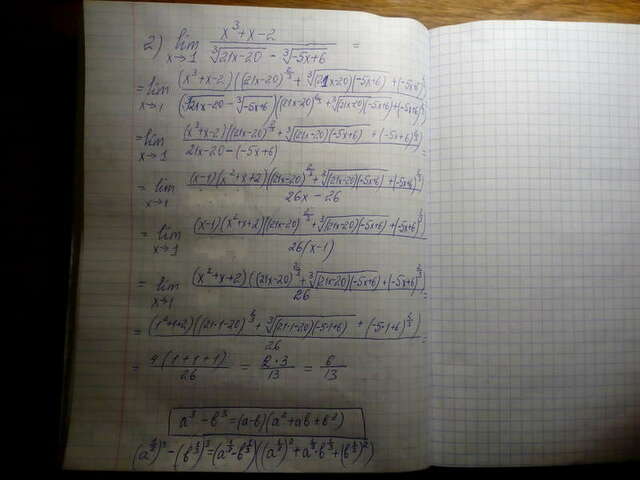 2) lim x→1 (x³+x-2)/(∛(21x-20) - ∛(-5x+6)) =
= lim x→1 (x³+x-2)((21x-20)^(2/3) + ∛((21x-20)(-5x+6)) + (-5x+6)^(2/3))/((∛(21x-20) - ∛(-5x+6))((21x-20)^(2/3) + ∛((21x-20)(-5x+6)) + (-5x+6)^(2/3)))
= lim x→1 (x³+x-2)((21x-20)^(2/3) + ∛((21x-20)(-5x+6)) + (-5x+6)^(2/3))/(21x-20-(-5x+6)) =
= lim x→1 (x-1)(x²+x+2)((21x-20)^(2/3) + ∛((21x-20)(-5x+6)) + (-5x+6)^(2/3))/(26x-26)
= lim x→1 (x-1)(x²+x+2)((21x-20)^(2/3) + ∛((21x-20)(-5x+6)) + (-5x+6)^(2/3))/(26(x-1))
= lim x→1 (x²+x+2)((21x-20)^(2/3) + ∛((21x-20)(-5x+6)) + (-5x+6)^(2/3))/26 =
= (1²+1+2)((21·1-20)^(2/3) + ∛((21·1-20)(-5·1+6)) + (-5·1+6)^(2/3))/26 =
= 4(1+1+1)/26 = 2·3/13 = 6/13
a³-b³=(a-b)(a²+ab+b²)
(a^(1/3))³-(b^(1/3))³=(a^(1/3)-b^(1/3))((a^(1/3))²+a^(1/3)·b^(1/3)+(b^(1/3))²)